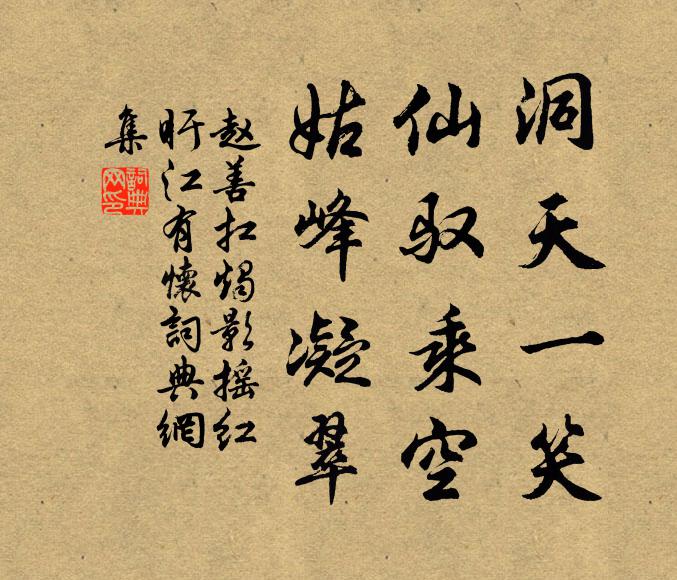 洞天一笑
仙驭乘空
姑峰凝翠
赵善扛烛影摇红
盱江有懷詞典網
集
詞典
网印